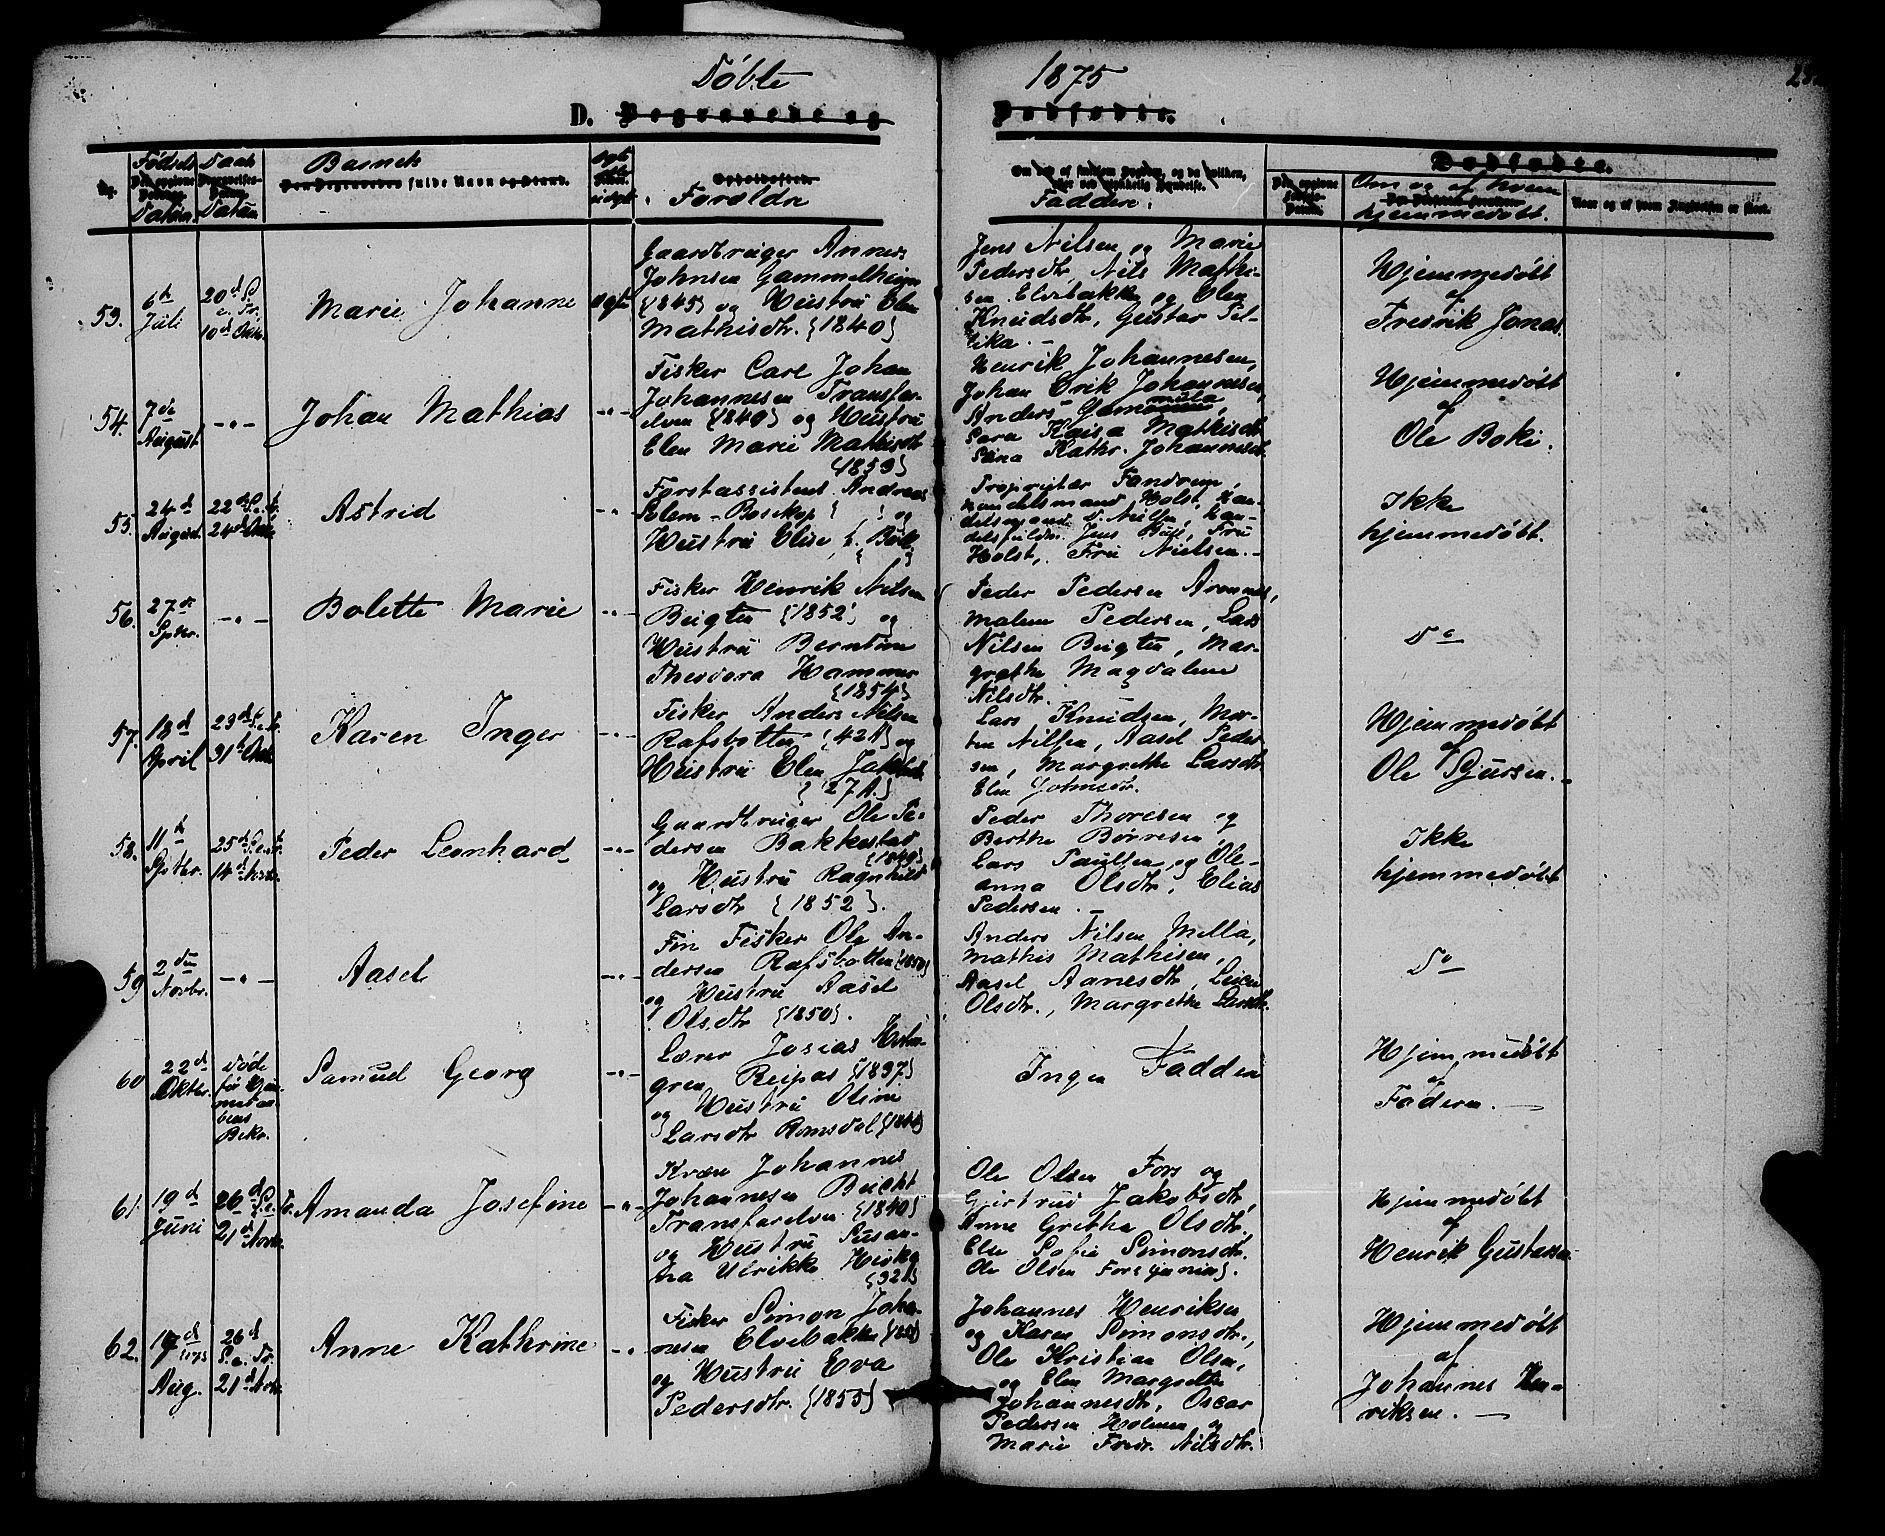 Döbte 1875
D. Begravede og Dødfødte.
Fødsels Datum.
Daab Datum
Barnets
fulde Navn og Stand.
Forældre
Faddere.
Dødfødte.
Om og af hvem
hjemmedøbt.
Naar og af hvem Anmeldelsen er skeet.
53.
6te
Juli
20d S.
e. Tr.
10d Oktr.
Marie Johanne
ægte
Gaardbruger Annes
Johnsen Gammelheim
{1845} og Hustru Elen
Mathisdtr. {1840}
Jens Nilsen og Marie
Pedersdtr, Nils Mathi-
sen Elvebakken og Elen
Knudsdtr, Gustav Pel-
Hjemmedøbt
af
Fredrik Jonas.
54.
7de
August.
-"-
Johan Mathias
-"-
Fisker Carl Johan
Johannesen Transfar-
elven {1849} og Hustru
Elen Marie Mathisdtr
{1853}
Henrik Johannesen,
Johan Erik Johannesen,
Anders
Sara Kaisa Mathisdtr
Kathr. Johannesdtr.
Hjemmedøbt
af
Ole Boki.
55.
24d
August
22d S. e. Tr.
24d Oktr.
Astrid
-"-
Forstassistent Andreas
Solem - Bosekop { } og
Hustru Elise f. Buck
{ }
Proprietær Fandrem,
Handelsmand Holst, Han-
delsmand D. Nilsen, Han-
Jens Buck, Fru
Holst, Fru Nielsen.-
Ikke
hjemmedøbt.
56.
27de
Sptbr.
-"-
Bolette Marie
-"-
Fisker Henrik Nilsen
Bugten {1852} og
Hustru Berntine
Theodora Hammer
{1854}
Peder Pedersen Aronnes,
Malene Pedersen, Lars
Nilsen Bugten, Mar-
grethe Magdalene
Nilsdtr.
Do
57.
18d
April
23d S. e. Tr.
31te Oktr.
Karen Inger
-"-
Fisker Anders Nilsen
Rafsbotten {42 A} og
Hustru Elen
{27 A.}
Lars Knudsen, Mor-
ten Nilsen, Aasel Peder-
sen, Margrethe Larsdtr
Elen Johnsdtr.
Hjemmedøbt
af
Ole Sjursen.-
58.
11d
Sptbr.
25d S. e. Tr.
14d Novbr.
Peder Leonhard
-"-
Gaardbruger Ole Pe-
dersen Bakkestad
{1849}
og Hustru Ragnhild
Larsdtr {1852}.
Peder Thoresen og
Berthe Børresen
Lars Paulsen og Ole-
anna Olsdtr, Elias
Pedersen.-
Ikke
hjemmedøbt
59
2den
Novbr.
-"-
Aasel
-"-
Fin Fisker Ole An-
dersen Rafsbotten {1850}
og Hustru Aasel
Olsdtr {1850}.
Anders Nilsen Mella,
Mathis Mathisen,
Aasel Aanesdtr,
Olsdtr., Margrethe Larsdtr.
Do
60
22d
Oktbr.
Døde
før Hjem-
medaa-
bens
Bekr.
Samuel Georg
-"-
Lærer Josias Holm-
gren, Reipas {1837}
og Hustru Oline
Larsdtr Romsdal
Ingen Faddere
Hjemmedøbt
af
Faderen.-
61.
19d
Juni
26d S. e. Tr.
21d Novbr.
Amanda Josefine
-"-
Kvæn Johannes
Johannesen Bucht
Transfarelven {1840}
og Hustru Susan-
na Ulrikke
{32 A}
Ole Olsen Fors og
Gjertrud Jakobsdtr,
Anne Grethe Olsdtr.
Else Sofie Simonsdtr.
Ole Olsen Fors {junior}.
Hjemmedøbt
af
Henrik Gustavsen
62.
17d
1875
Aug.
26d
S. e. Tr.
21d Novbr.
Anne Kathrine
-"-
Fisker Simon Johan-
nesen Elvebakken
og Hustru Eva
Pedersdtr. {1855}
Johannes Henriksen
og Karen Simonsdtr.,
Ole Kristian Olsen,
og Elen Margrethe
Johannesdtr, Oscar
Pedersen Holmen og
Marie Fredr. Nilsdtr.
Hjemmedøbt
af
Johannes Hen-
riksen.-